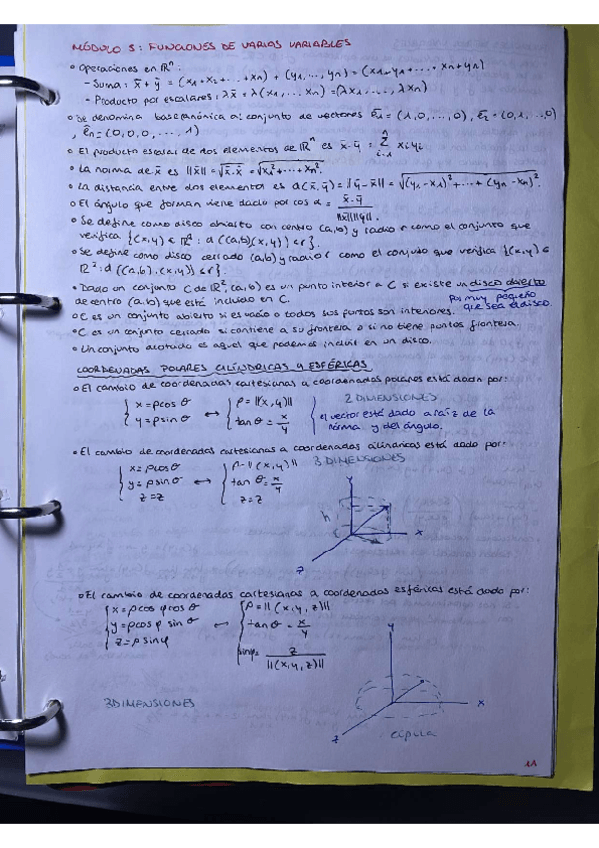 MÓDULO 5: FUNCIONES DE VARIAS VARIABLES
• Operaciones en ℝⁿ:
- Suma: x̄ + ȳ = (x₁+x₂+...+xn) + (y₁,...,yn) = (x₁+y₁+...+xn+yn)
- Producto por escalares: λx̄ = λ(x₁,...,xn) = (λx₁,..., λxn)
• Se denomina base canónica al conjunto de vectores ē₁ = (1,0,...,0), ē₂ = (0,1,...,0)
, ēn = (0,0,0,...,1)
• El producto escalar de dos elementos de ℝⁿ es x̄·ȳ = Σ xiyi
• La norma de x̄ es ||x̄|| = √x̄·x̄ = √x₁²+...+xn².
• La distancia entre dos elementos es d(x̄,ȳ) = ||ȳ-x̄|| = √(y₁-x₁)²+...+(yn-xn)².
• El ángulo que forman viene dado por cos α = x̄·ȳ / ||x̄||||ȳ||.
• Se define como disco abierto con centro (a,b) y radio r como el conjunto que
verifica {(x,y) ∈ ℝ²: d((a,b)(x,y)) < r}.
• Se define como disco cerrado (a,b) y radio r como el conjuto que verifica {(x,y) ∈
ℝ²: d((a,b),(x,y)) ≤ r}.
• Dado un conjunto C de ℝ², (a,b) es un punto interior a C si existe un disco abierto
de centro (a,b) que está incluido en C. por muy pequeño
que sea el disco.
• C es un conjunto abierto si es vacío o todos sus puntos son interiores.
• C es un conjunto cerrado si contiene a su frontera o si no tiene puntos frontera.
• Un conjunto acotado es aquel que podemos incluir en un disco.
COORDENADAS POLARES CILÍNDRICAS Y ESFÉRICAS
• El cambio de coordenadas cartesianas a coordenadas polares está dado por:
2 DIMENSIONES
{ x = ρcos θ ↔ { ρ = ||(x,y)||
y = ρsin θ tan θ = x/y
el vector está dado a raíz de la
norma y del ángulo.
• El cambio de coordenadas cartesianas a coordenadas cilíndricas está dado por:
3 DIMENSIONES
{ x = ρcos θ { ρ = ||(x,y)||
y = ρsin θ ↔ tan θ = x/y
z = z z = z
y
h
x
z
• El cambio de coordenadas cartesianas a coordenadas esféricas está dado por:
{ x = ρcos φ cos θ { ρ = ||(x,y,z)||
y = ρcos φ sin θ ↔ tan θ = x/y
z = ρ sin φ sin φ = z / ||(x,y,z)||
y
3 DIMENSIONES
x
z
cúpula
11